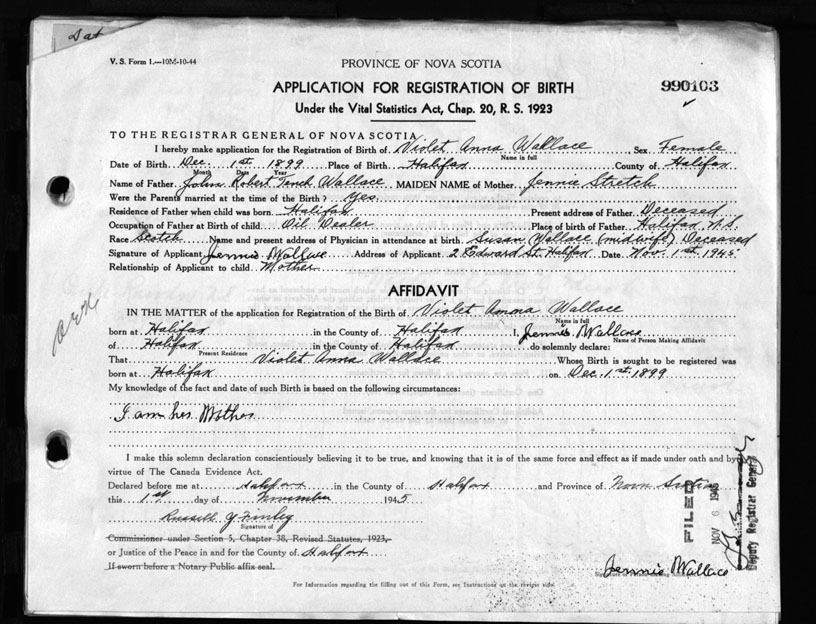 Dat
V. S. Form 1.—10M-10-44
PROVINCE OF NOVA SCOTIA
APPLICATION FOR REGISTRATION OF BIRTH
990103
Under the Vital Statistics Act, Chap. 20, R. S. 1923
TO THE REGISTRAR GENERAL OF NOVA SCOTIA
I hereby make application for the Registration of Birth of Violet Anna Wallace Sex Female
Name in full
Date of Birth Dec 1st 1899 Place of Birth Halifax County of Halifax
Month Date Year
Name of Father John Robert Tench Wallace MAIDEN NAME of Mother Jennie Stretch
Were the Parents married at the time of the Birth? Yes
Residence of Father when child was born Halifax Present address of Father Deceased
Occupation of Father at Birth of child Oil Dealer Place of birth of Father Halifax N.S.
Race Scotch Name and present address of Physician in attendance at birth Susan Wallace (midwife) Deceased
Signature of Applicant Jennie Wallace Address of Applicant 2 Edward St. Halifax Date Nov. 1st 1945
Relationship of Applicant to child Mother
AFFIDAVIT
IN THE MATTER of the application for Registration of the Birth of Violet Anna Wallace
Name in full
born at Halifax in the County of Halifax I, Jennie Wallace
Name of Person Making Affidavit
of Halifax in the County of Halifax do solemnly declare:
Present Residence
That Violet Anna Wallace Whose Birth is sought to be registered was
born at Halifax on Dec. 1st. 1899
My knowledge of the fact and date of such Birth is based on the following circumstances:
I am her Mother
I make this solemn declaration conscientiously believing it to be true, and knowing that it is of the same force and effect as if made under oath and by
virtue of The Canada Evidence Act.
Declared before me at Halifax in the County of Halifax and Province of Nova Scotia
this 1st day of November 1945
Russell Y Finley
Signature of
Commissioner under Section 5, Chapter 38, Revised Statutes, 1923,
or Justice of the Peace in and for the County of Halifax
If sworn before a Notary Public affix seal.
Jennie Wallace
For Information regarding the filling out of this Form, see Instructions on the reverse side.
FILED
NOV 6 1945
Deputy Registrar General